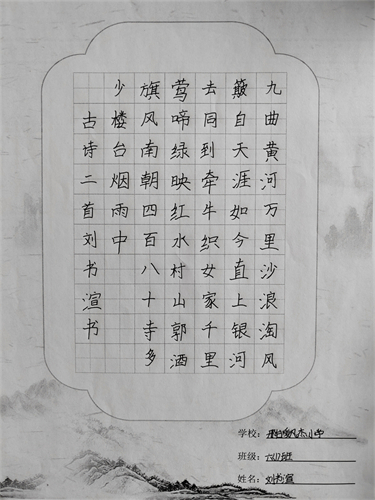 九曲黄河万里沙浪淘风
簸自天涯如今直上银河
去同到牵牛织女家千里
莺啼绿映红水村山郭酒
旗风南朝四百八十寺多
少楼台烟雨中
古诗二首刘书渲书
学校: 小学
班级:
姓名: 刘书渲